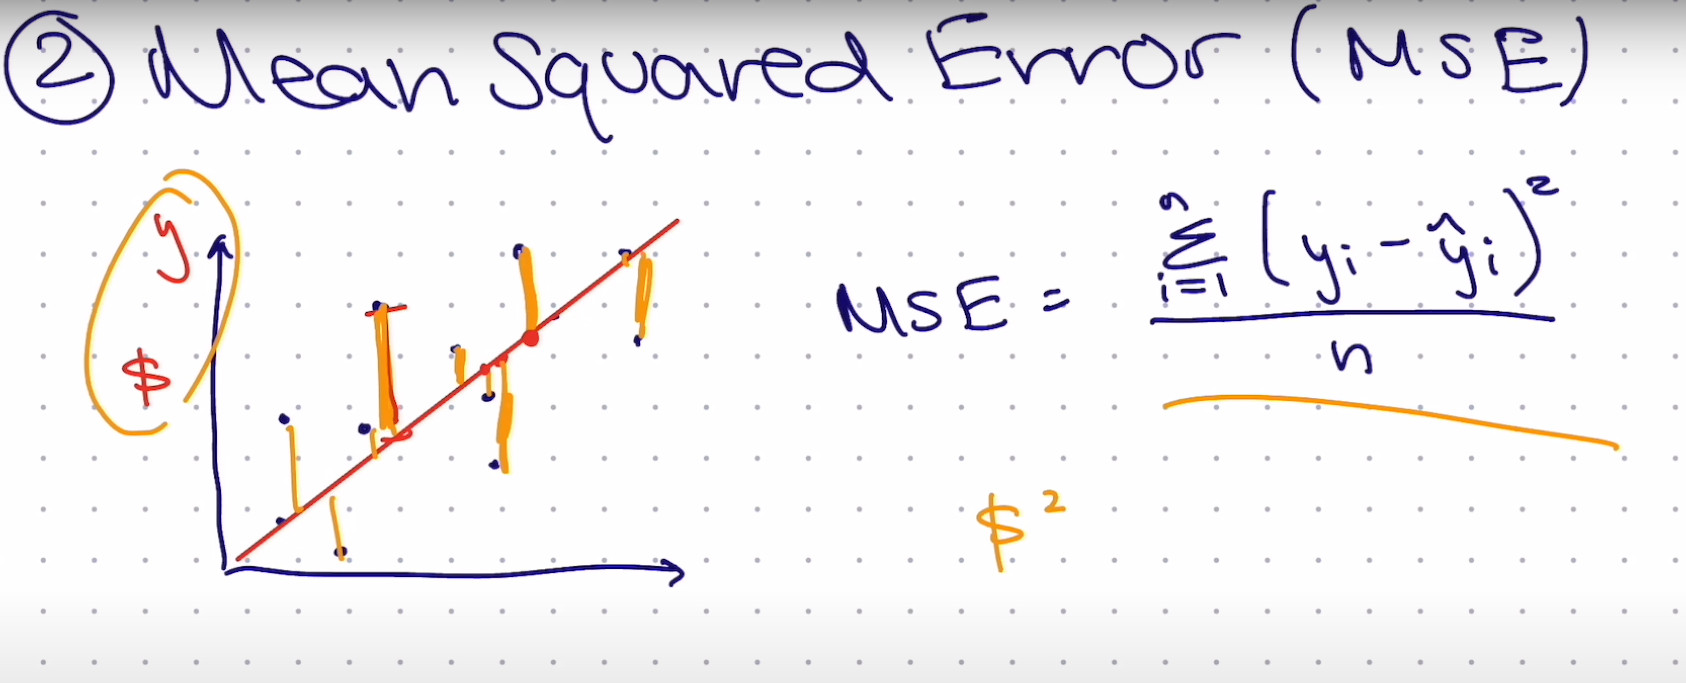 ② Mean Squared Error (MSE)
y
$
MSE = \frac{\sum_{i=1}^{n} (y_i - \hat{y}_i)^2}{n}
$²